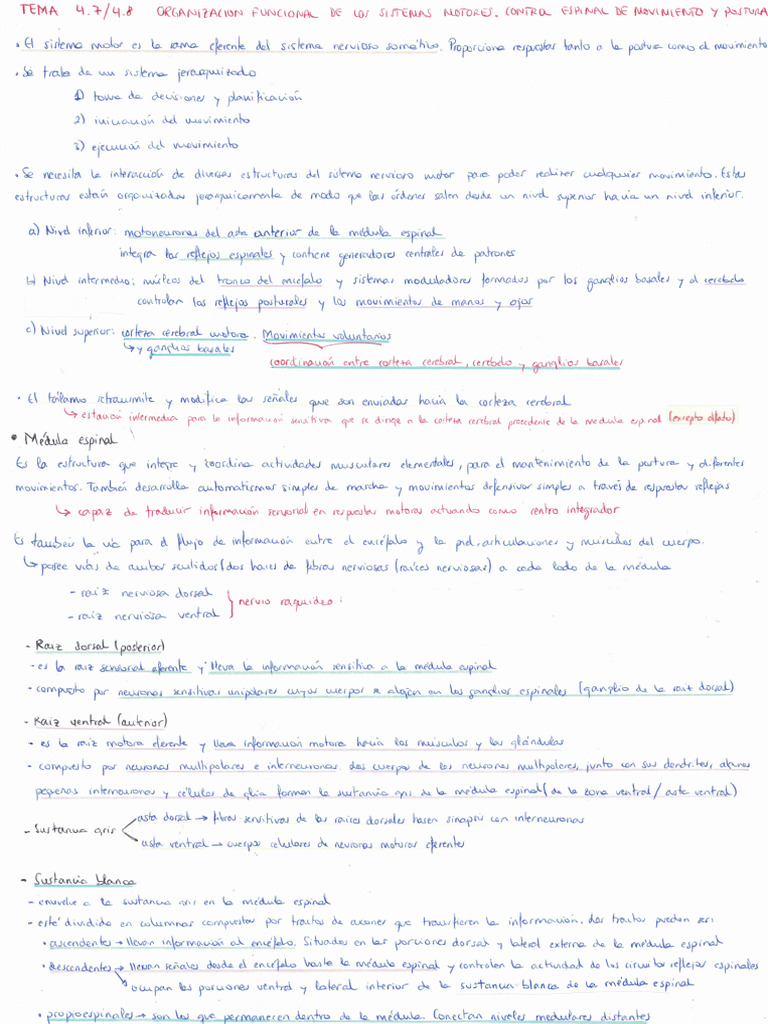 TEMA 4.7/4.8 ORGANIZACION FUNCIONAL DE LOS SISTEMAS MOTORES. CONTROL ESPINAL DE MOVIMIENTO Y POSTURA
• El sistema motor es la rama eferente del sistema nervioso somático. Proporciona respuestas tanto a la postura como al movimiento
• Se trata de un sistema jerarquizado
1) toma de decisiones y planificación
2) iniciación del movimiento
3) ejecución del movimiento
• Se necesita la interacción de diversas estructuras del sistema nervioso motor para poder realizar cualquier movimiento. Estas
estructuras están organizadas jerarquicamente de modo que las órdenes salen desde un nivel superior hacia un nivel inferior.
a) Nivel inferior: motoneuronas del asta anterior de la médula espinal
integra los reflejos espinales y contiene generadores centrales de patrones
b) Nivel intermedio: núcleos del tronco del encéfalo y sistemas moduladores formados por los ganglios basales y el cerebelo
controlan los reflejos posturales y los movimientos de manos y ojos
c) Nivel superior: corteza cerebral motora. Movimientos voluntarios
↳ y ganglios basales
coordinación entre corteza cerebral, cerebelo y ganglios basales
• El tálamo retransmite y modifica las señales que son enviadas hacia la corteza cerebral
↳ estación intermedia para la información sensitiva que se dirige a la corteza cerebral procedente de la medula espinal (excepto olfato)
• Médula espinal
Es la estructura que integra y coordina actividades musculares elementales, para el mantenimiento de la postura y diferentes
movimientos. También desarrolla automatismos simples de marcha y movimientos defensivos simples a través de respuestas reflejas
↳ capaz de traducir información sensorial en respuestas motoras actuando como centro integrador
Es también la vía para el flujo de información entre el encéfalo y la piel, articulaciones y músculos del cuerpo.
↳ posee vías de ambos sentidos (dos haces de fibras nerviosas (raíces nerviosas) a cada lado de la médula
- raiz nerviosa dorsal
- raiz nerviosa ventral } nervio raquideo:
- Raiz dorsal (posterior)
- es la raiz sensorial aferente y lleva la información sensitiva a la médula espinal
- compuesto por neuronas sensitivas unipolares cuyos cuerpos se alojan en los ganglios espinales (ganglio de la raiz dorsal)
- Raiz ventral (anterior)
- es la raiz motora eferente y lleva información motora hacia los músculos y las glándulas
- compuesto por neuronas multipolares e interneuronas. Los cuerpos de las neuronas multipolares, junto con sus dendritas, algunas
pequeñas interneuronas y células de glia forman la sustancia gris de la médula espinal (de la zona ventral/asta ventral)
- Sustancia gris
asta dorsal → fibras sensitivas de las raices dorsales hacen sinapsis con interneuronas
asta ventral → cuerpos celulares de neuronas motoras eferentes
- Sustancia blanca
- envuelve a la sustancia gris en la médula espinal
- esté dividido en columnas compuestas por tractos de axones que transfieren la información. Los tractos pueden ser:
• ascendentes → llevan información al encéfalo. Situados en las porciones dorsal y lateral externa de la médula espinal
• descendentes → llevan señales desde el encéfalo hasta la médula espinal y controlan la actividad de los circuitos reflejos espinales
↳ ocupan las porciones ventral y lateral interior de la sustancia blanca de la médula espinal
• propioespinales → son los que permanecen dentro de la médula. Conectan niveles medulares distantes